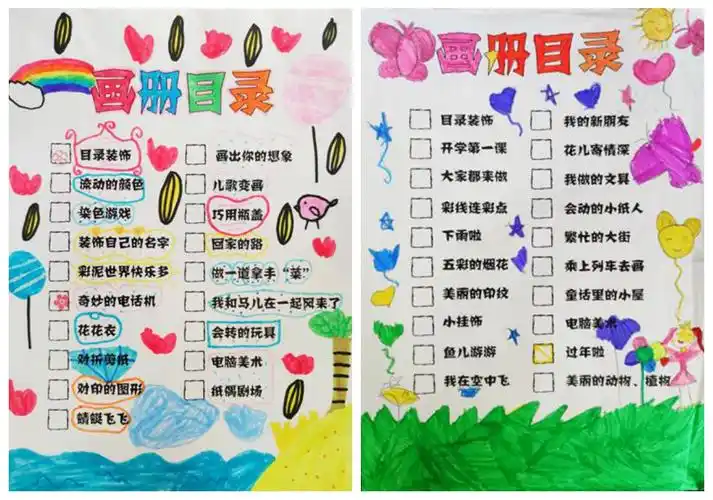 画册目录
目录装饰
流动的颜色
染色游戏
装饰自己的名字
彩泥世界快乐多
奇妙的电话机
花花衣
对折剪纸
对印的图形
蜻蜓飞飞
画出你的想象
儿歌变画
巧用瓶盖
回家的路
做一道拿手“菜”
我和马儿在一起风来了
会转的玩具
电脑美术
纸偶剧场
画册目录
目录装饰
开学第一课
大家都来做
彩线连彩点
下雨啦
五彩的烟花
美丽的印纹
小挂饰
鱼儿游游
我在空中飞
我的新朋友
花儿寄情深
我做的文具
会动的小纸人
繁忙的大街
乘上列车去画
童话里的小屋
电脑美术
过年啦
美丽的动物、植物